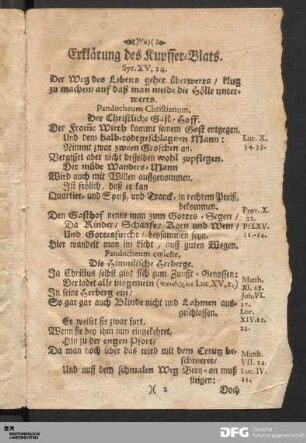 Erklärung des Kupffer-Blats.
Syr. XV, 24.
Der Weg des Lebens gehet überwerts / klug
zu machen / auf daß man meide die Hölle unter-
werts.
Pandocheum Christianum,
Der Christliche Gast-Hoff.
Der From̃e Wirth kommt seinem Gast entgegen,
Und dem halb-todtgeschlagnen Mann:
Luc. X.
Nimmt zwar zween Groschen an.
Vergisset aber nicht desselben wohl zupflegen.
Der müde Wanders-Mann
Wird auch mit Willen aufgenommen,
Ist frölich, daß er kan
Quartier, und Speiß, und Tranck, in rechtem Preiß,
bekommen.
Den Gasthof nenne man zum Gottes-Segen /
Prov. X.
22.
Da Rinder / Schaafe / Korn und Wein /
Und Gottesfurcht / beysammen seyn.
Hier wandelt man im Licht / auff guten Wegen.
Pandocheum cœleste,
Die Himmlische Herberge.
Ja Christus selbst gibt sich zum Zunfft-Genossen:
Matth.
Der ladet alle insgemein
Luc. XV, 2.)
XI. 28.
In seine Herberg ein /
Joh. VI.
So gar gar auch Blinde nicht und Lahmen aus-
geschlossen.
Luc.
XIV. 21.
Er weiset sie zwar fort,
Wenn sie bey ihm nun eingekehret,
Hin zu der engen Pfort /
Da man noch über das wird mit dem Creutz be-
schweret /
Matth.
VII. 14.
Und auff dem schmalen Weg Berg-an muß
steigen:
Luc. IV.
)( 2
Doch
SÄCHSISCHE
LANDESBIBLIOTHEK
DFG
Deutsche
Forschungsgemeinschaft